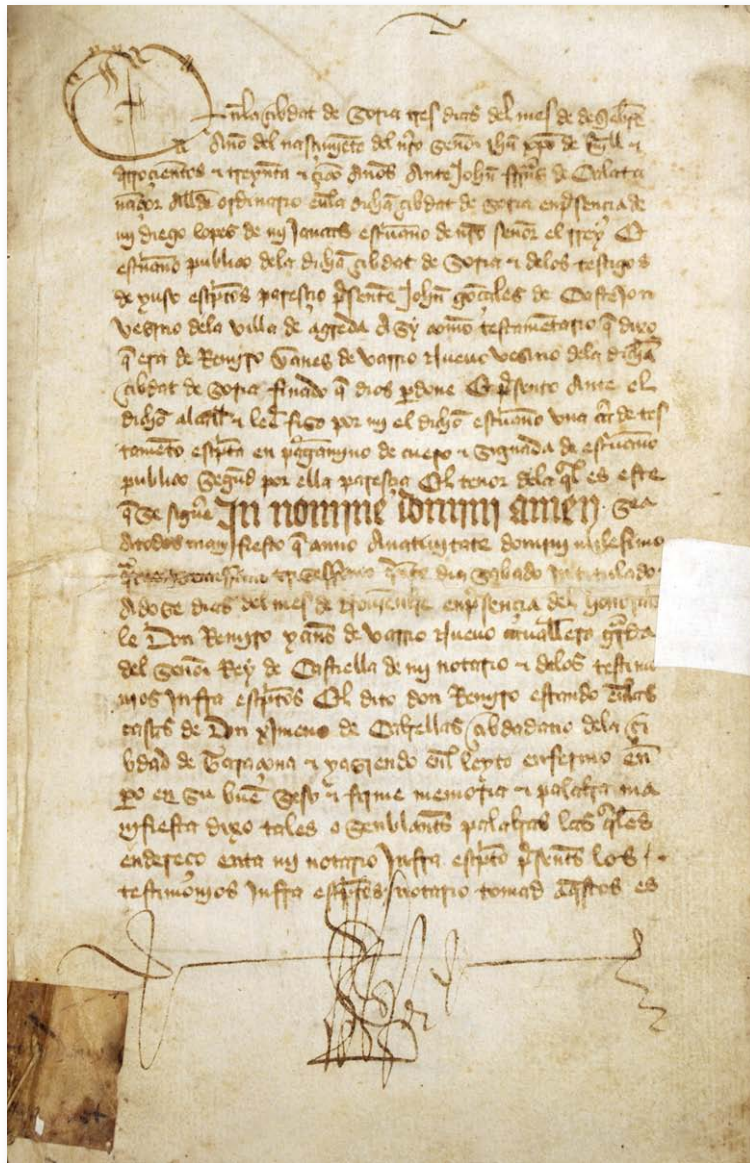 En la çibdat de Soria tres dias del mes de
Año del nasçimiento del nro Señor ihu xpo de mill e
quatroçientos e treynta e çinco Años Ante Johan ferrs de Calata
nazor Allde ordinario enla dicha çibdat de Soria en presençia de
mi diego lopes de escriuano de nro señor el rrey Et
escriuano publico dela dicha çibdat de Soria e delos testigos
de yuso escriptos paresçio presente Johan gonçales de Castejon
vesino dela villa de agreda Asy como testamentario que dixo
que era de Remiro yanes de varrio nueuo vesino dela dicha
çibdat de Soria finado que dios perdone Et presento Ante el
dicho alcalle e leer fiso por mi el dicho escriuano vna carta de tes
tamento escripta en pargamino de cuero e signada de escriuano
publico Segund por ella paresçia El tenor dela qual es este
que se sigue In nomine domini amen. Sea
Atodos manifiesto que anno Anatiuitate domini milesimo
quinto dia Sabado Intitulado
Adose dias del mes de nouiembre en presençia del honorab
le Don Remiro yanes de varrio nueuo cauallero guarda
del Señor Rey de Castiella de mi notario e delos testimo
nios Infra escriptos El dito don Remiro estando enlas
casas de Don ximeno de çibdadano dela çi
vdad de Taraçona e yaziendo enel leyto enfermo
pero en su buen seso e firme memoria e palabra ma
nifiesta dixo tales o senblantes palabras las quales
endereço enta mi notario Infra escripto presentes los
testimonios Infra escriptos notario tomad Aquestos es